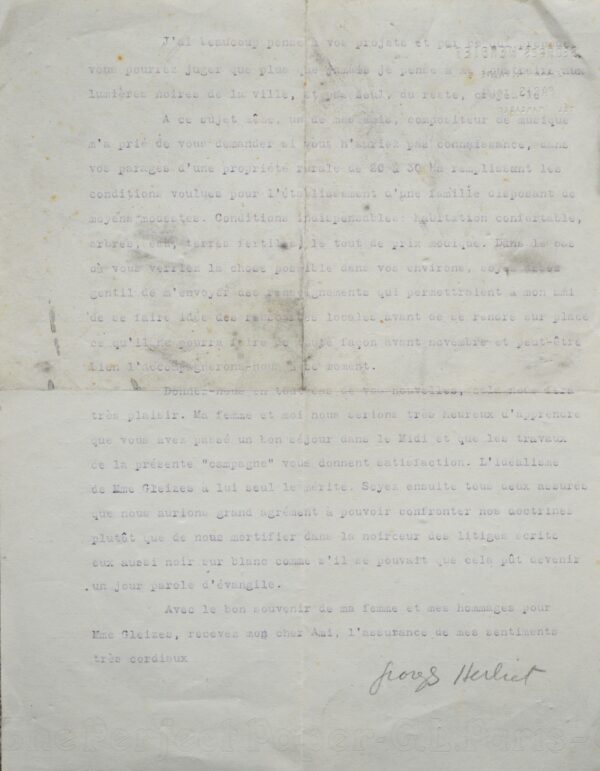 J'ai beaucoup pensé à vos projets et par
vous pourrez juger que plus que jamais je pense à me
lumières noires de la ville, et pas seul, du reste, croyez-le.
A ce sujet même, un de mes amis, compositeur de musique
m'a prié de vous demander si vous n'auriez pas connaissance, dans
vos parages d'une propriété rurale de 20 à 30 Ha remplissant les
conditions voulues pour l'établissement d'une famille disposant de
moyens modestes. Conditions indispensables: habitation confortable,
arbres, eau, terres fertiles, le tout de prix modique. Dans le cas
où vous verriez la chose possible dans vos environs, soyez
gentil de m'envoyer des renseignements qui permettraient à mon ami
de se faire idée des ressources locales avant de se rendre sur place
ce qu'il ne pourra faire de toute façon avant novembre et peut-être
bien l'accompagnerons-nous à ce moment.
Donnez-nous en tout cas de vos nouvelles, cela nous fera
très plaisir. Ma femme et moi nous serions très heureux d'apprendre
que vous avez passé un bon séjour dans le Midi et que les travaux
de la présente "campagne" vous donnent satisfaction. L'idéalisme
de Mme Gleizes à lui seul le mérite. Soyez ensuite tous deux assurés
que nous aurions grand agrément à pouvoir confronter nos doctrines
plutôt que de nous mortifier dans la noirceur des litiges écrits
eux aussi noir sur blanc comme s'il se pouvait que cela pût devenir
un jour parole d'évangile.
Avec le bon souvenir de ma femme et mes hommages pour
Mme Gleizes, recevez mon cher Ami, l'assurance de mes sentiments
très cordiaux
Perfect Paper-G.L.Paris-